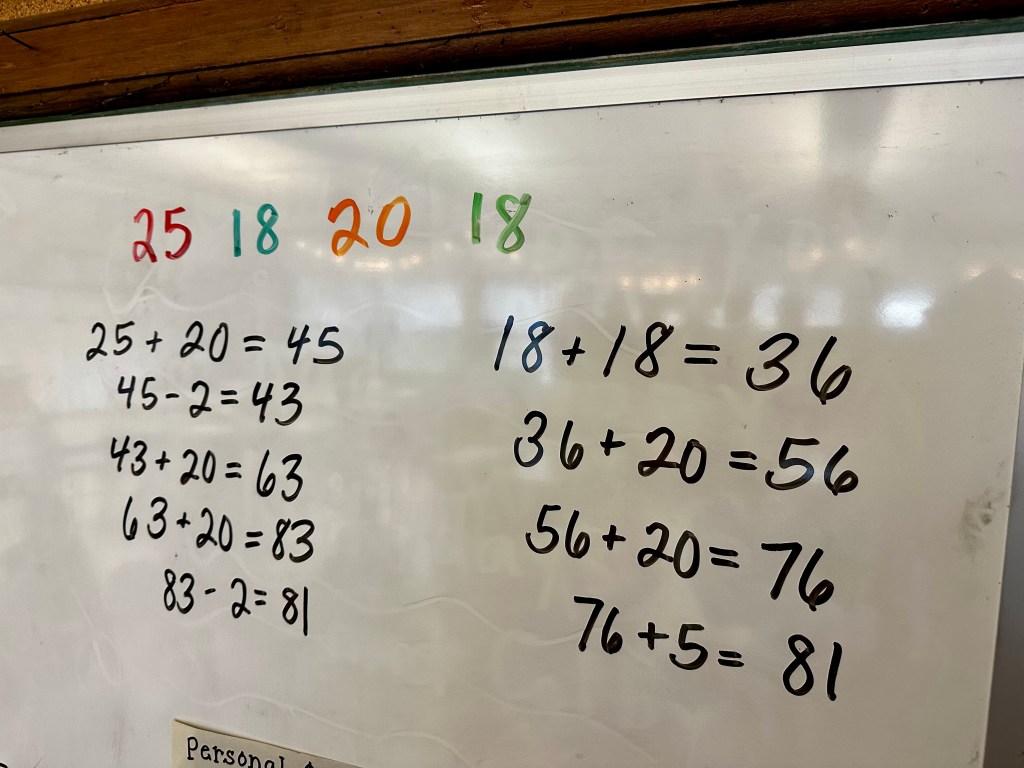 25 18 20 18
25 + 20 = 45
45 - 2 = 43
43 + 20 = 63
63 + 20 = 83
83 - 2 = 81
18 + 18 = 36
36 + 20 = 56
56 + 20 = 76
76 + 5 = 81
Personal